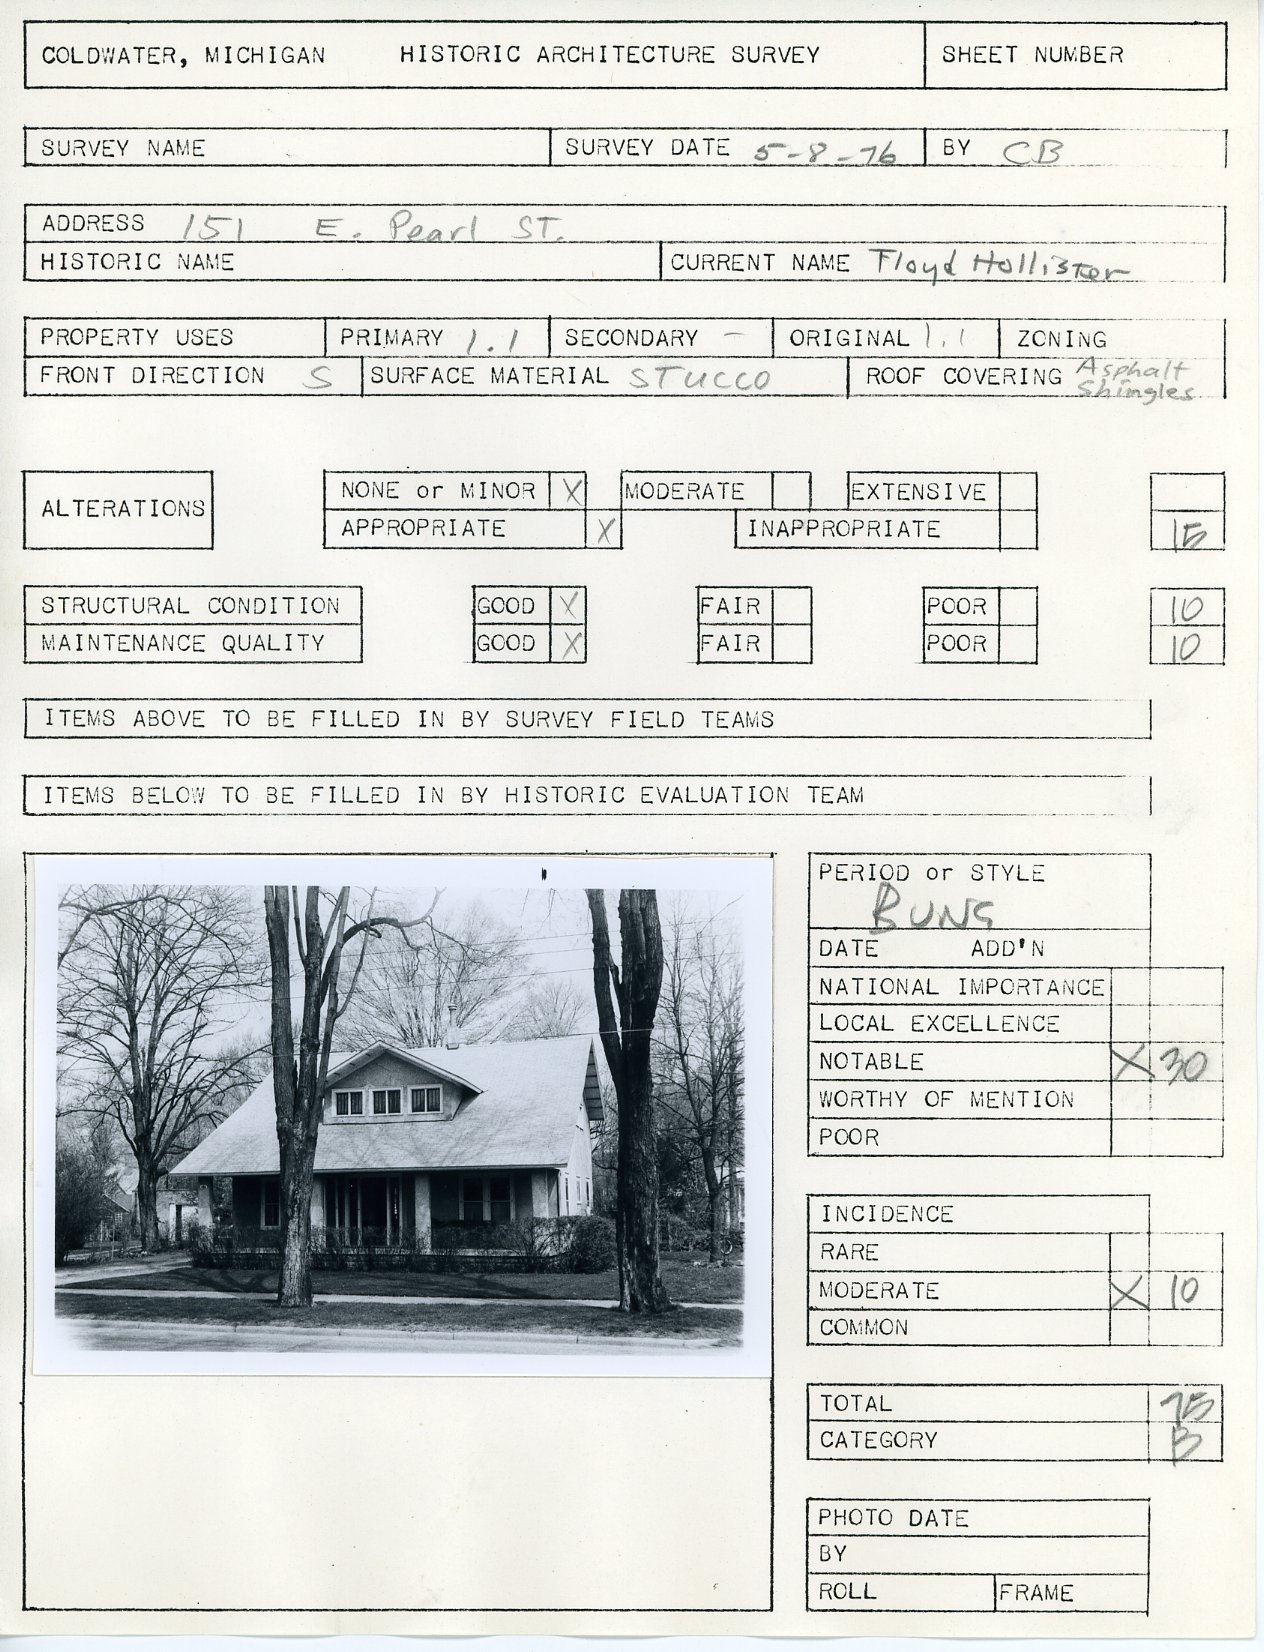 COLDWATER, MICHIGAN HISTORIC ARCHITECTURE SURVEY SHEET NUMBER
SURVEY NAME SURVEY DATE 5-8-76 BY CB
ADDRESS 151 E. Pearl ST.
HISTORIC NAME CURRENT NAME Floyd Hollister
PROPERTY USES PRIMARY 1.1 SECONDARY - ORIGINAL 1.1 ZONING
FRONT DIRECTION S SURFACE MATERIAL STUCCO ROOF COVERING Asphalt
Shingles
NONE or MINOR X MODERATE EXTENSIVE
ALTERATIONS
APPROPRIATE X INAPPROPRIATE 15
STRUCTURAL CONDITION GOOD X FAIR POOR 10
MAINTENANCE QUALITY GOOD X FAIR POOR 10
ITEMS ABOVE TO BE FILLED IN BY SURVEY FIELD TEAMS
ITEMS BELOW TO BE FILLED IN BY HISTORIC EVALUATION TEAM
PERIOD or STYLE
BUNG
DATE ADD'N
NATIONAL IMPORTANCE
LOCAL EXCELLENCE
NOTABLE X 30
WORTHY OF MENTION
POOR
INCIDENCE
RARE
MODERATE X 10
COMMON
TOTAL 75
CATEGORY B
PHOTO DATE
BY
ROLL FRAME